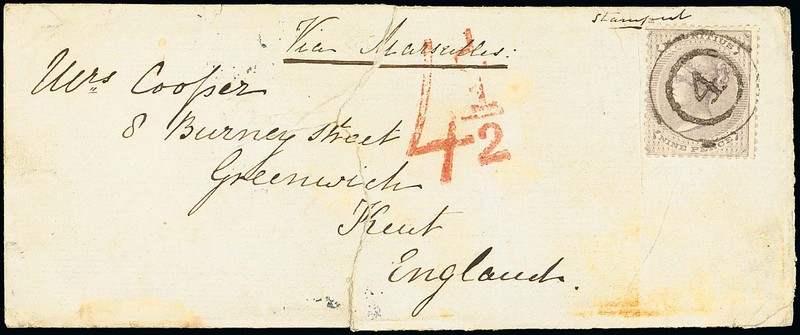 stampd
Via Marseilles:
Mrs Cooper
8 Burney Street
Greenwich
Kent
England.
4 1/2
MAURITIUS
4
NINE PENCE